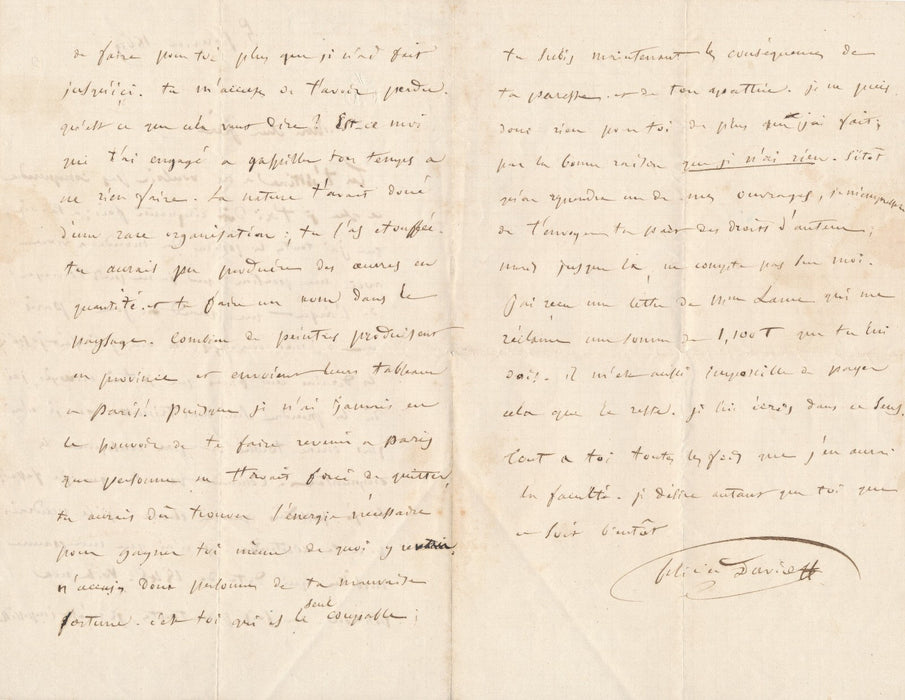 de faire pour toi plus que je n'ai fait
jusqu'ici. tu m'accuses de t'avoir perdu.
qu'est ce que cela veut dire? Est-ce moi
qui t'ai engagé a gaspiller ton temps a
ne rien faire. La nature t'avait doué
d'une rare organisation; tu l'as etouffée.
tu aurais pu produire des œuvres en
quantité et te faire un nom dans le
paysage. Combien de peintres produisent
en province et envoient leurs tableaux
a Paris! puisque je n'ai jamais eu
le pouvoir de te faire revenir a Paris
que personne ne t'avait forcé de quitter,
tu aurais dû trouver l'énergie nécessaire
pour gagner toi même de quoi y revenir.
n'accuses donc personne de ta mauvaise
fortune. c'est toi qui es le seul coupable;
tu subis maintenant les conséquences de
ta paresse et de ton apathie. je ne puis
donc rien pour toi de plus que j'ai fait,
par la bonne raison que je n'ai rien. Sitôt
un de mes ouvrages, je
de t'envoyer ta part des droits d'auteur;
mais jusque là, ne compte pas sur moi.
J'ai reçu une lettre de Mme Lame qui me
réclame une somme de 1,100f que tu lui
dois. il m'est aussi impossible de payer
cela que le reste. je lui écris dans ce sens.
tout a toi toutes les fois que j'en aurai
la faculté. je désire autant que toi que
ce soit bientôt
félicien David